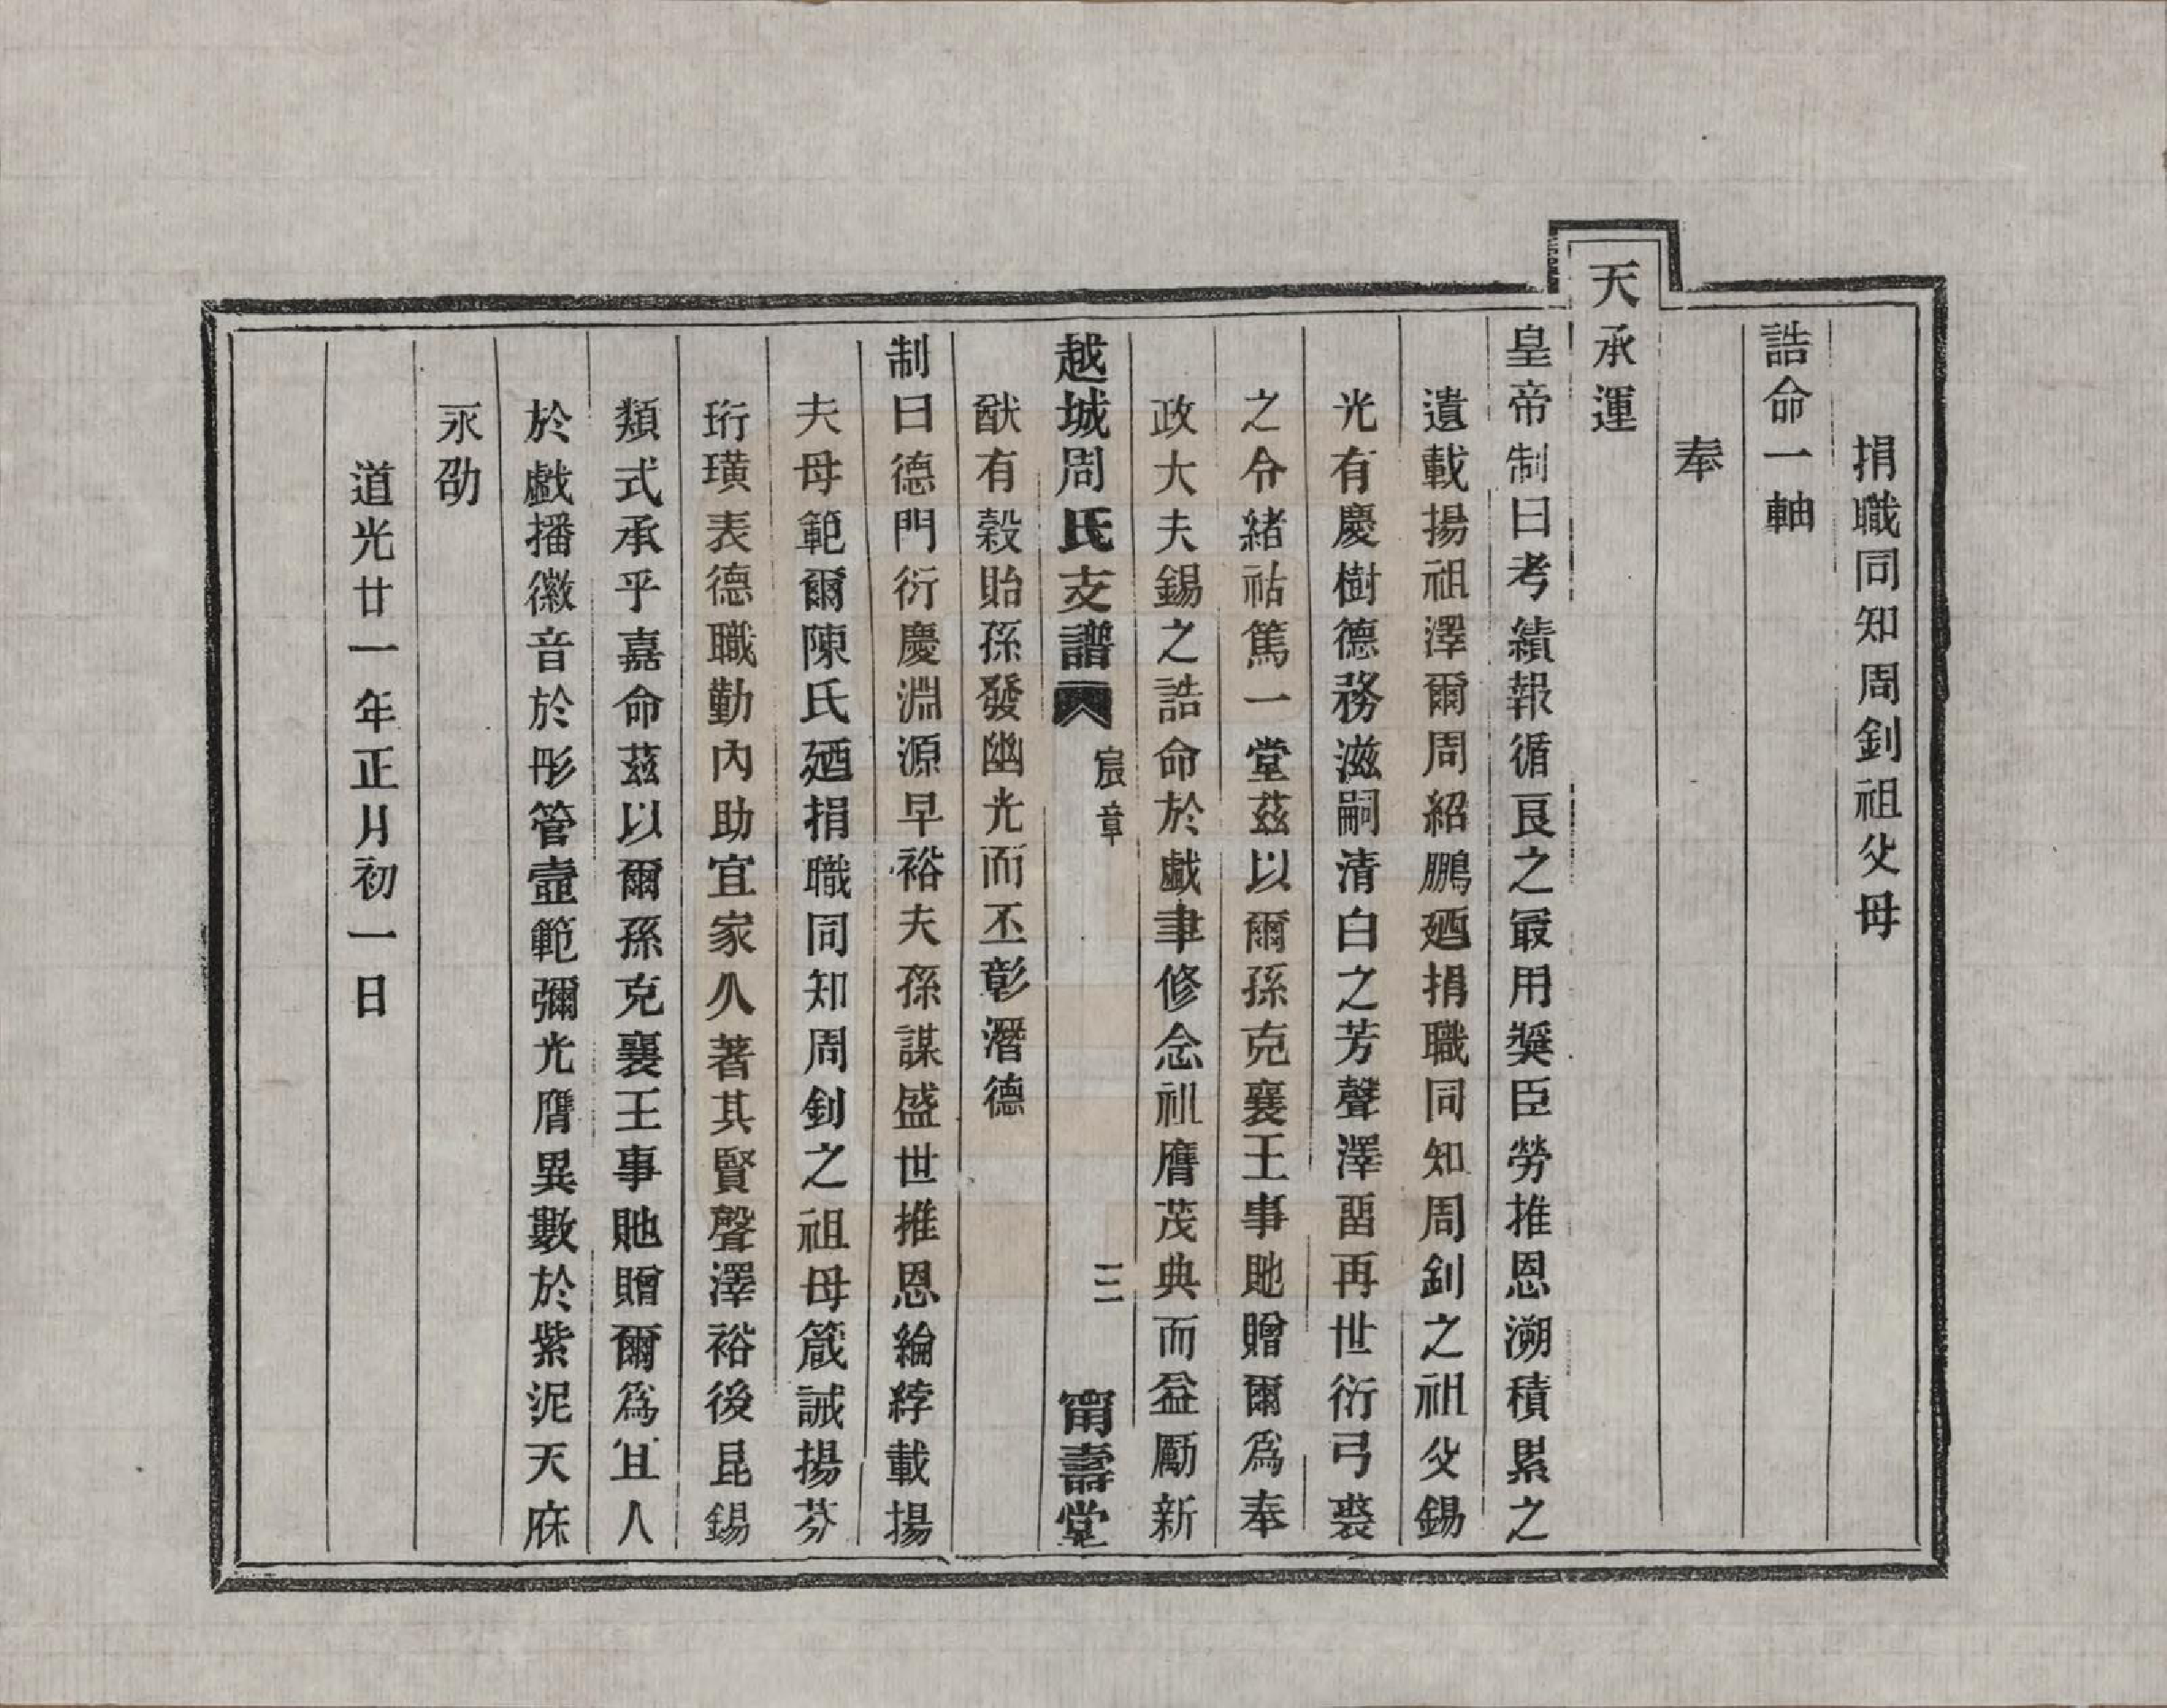 捐職同知周釗祖父母
誥命一軸
奉
天承運
皇帝制曰考績報循良之最用奬臣勞推恩溯積累之
遺載揚祖澤爾周紹鵬廼捐職同知周釗之祖父錫
光有慶樹德務滋嗣清白之芳聲澤畱再世衍弓裘
之令緒祜篤一堂茲以爾孫克襄王事貤贈爾爲奉
政大夫錫之誥命於戲聿修念祖膺茂典而益勵新
猷有穀貽孫發幽光而丕彰潛德
越城周氏支譜
宸章
三
甯壽堂
制曰德門衍慶淵源早裕夫孫謀盛世推恩綸綍載揚
夫母範爾陳氏廼捐職同知周釗之祖母箴誡揚芬
珩璜表德職勤內助宜家久著其賢聲澤裕後昆錫
類式承乎嘉命茲以爾孫克襄王事貤贈爾爲宜人
於戲播徽音於彤管壼範彌光膺異數於紫泥天庥
永劭
道光廿一年正月初一日